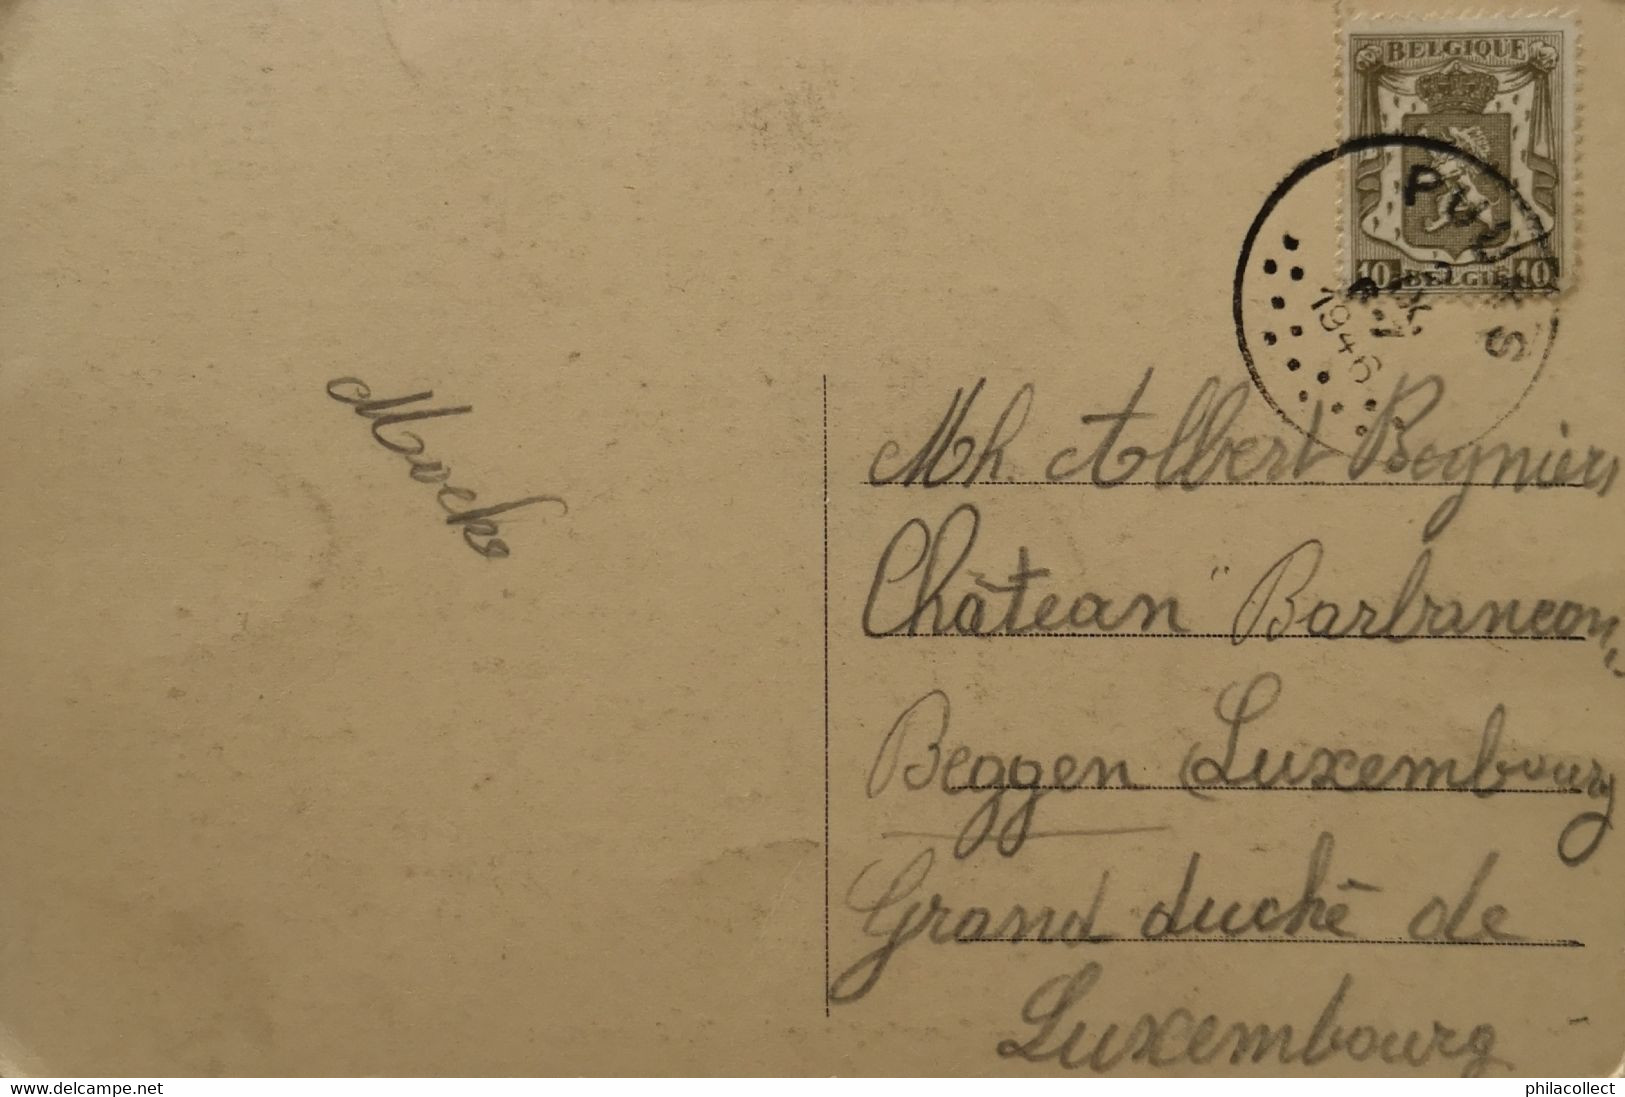 BELGIQUE
10 BELGIE 10
1946
Mh. Albert Beyniers
Château "Barbançon"
Beggen Luxembourg
Grand duché de
Luxembourg
Moeks
https://www.delcampe.net
philacollect